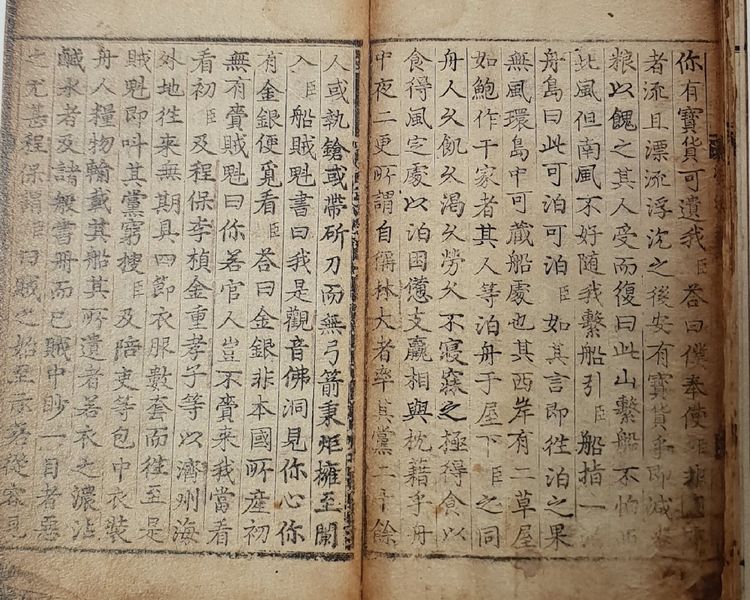 你有寶貨可遺我臣答曰僕奉使臣非
者流且漂流浮沈之後安有寶貨乎即減
粮以餽之其人受而復曰此山繫船不怕西
此風但南風不好隨我繫船引臣船指一
舟島曰此可泊可泊臣如其言即徃泊之果
無風環島中可藏船處也其西岸有二草屋
如鮑作干家者其人等泊舟于屋下臣之同
舟人久飢久渴久勞久不寢寐之極得食以
食得風定處以泊困憊支羸相與枕藉乎舟
中夜二更所謂自稱林大者率其黨二十餘
人或執鎗或帶斫刀而無弓箭秉炬擁至闌
入臣船賊魁書曰我是觀音佛洞見你心你
有金銀便覓看臣答曰金銀非本國所産初
無有賫賊魁曰你若官人豈不賫來我當看
看初臣及程保李楨金重孝子等以濟州海
外地徃來無期具四節衣服數套而徃至是
賊魁即叫其黨窮搜臣及陪吏等包中衣裝
舟人糧物輸載其船其所遺者若衣之濃沾
醎水者及諸般書冊而已賊中眇一目者惡
之尤甚程保謂臣曰賊之始至示若從容見